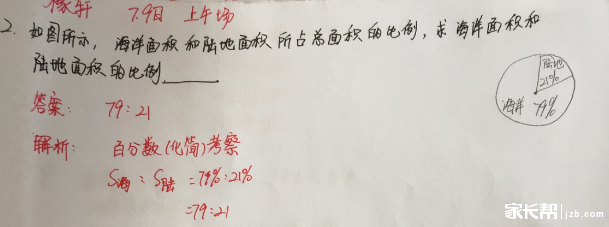 7.9日 上午场
2. 如图所示, 海洋面积和陆地面积所占总面积的比例, 求海洋面积和
陆地面积的比例______
陆地
21%
海洋 79%
答案: 79:21
解析: 百分数(化简)考察
S海:S陆 =79%:21%
=79:21
家长帮 jzb.com